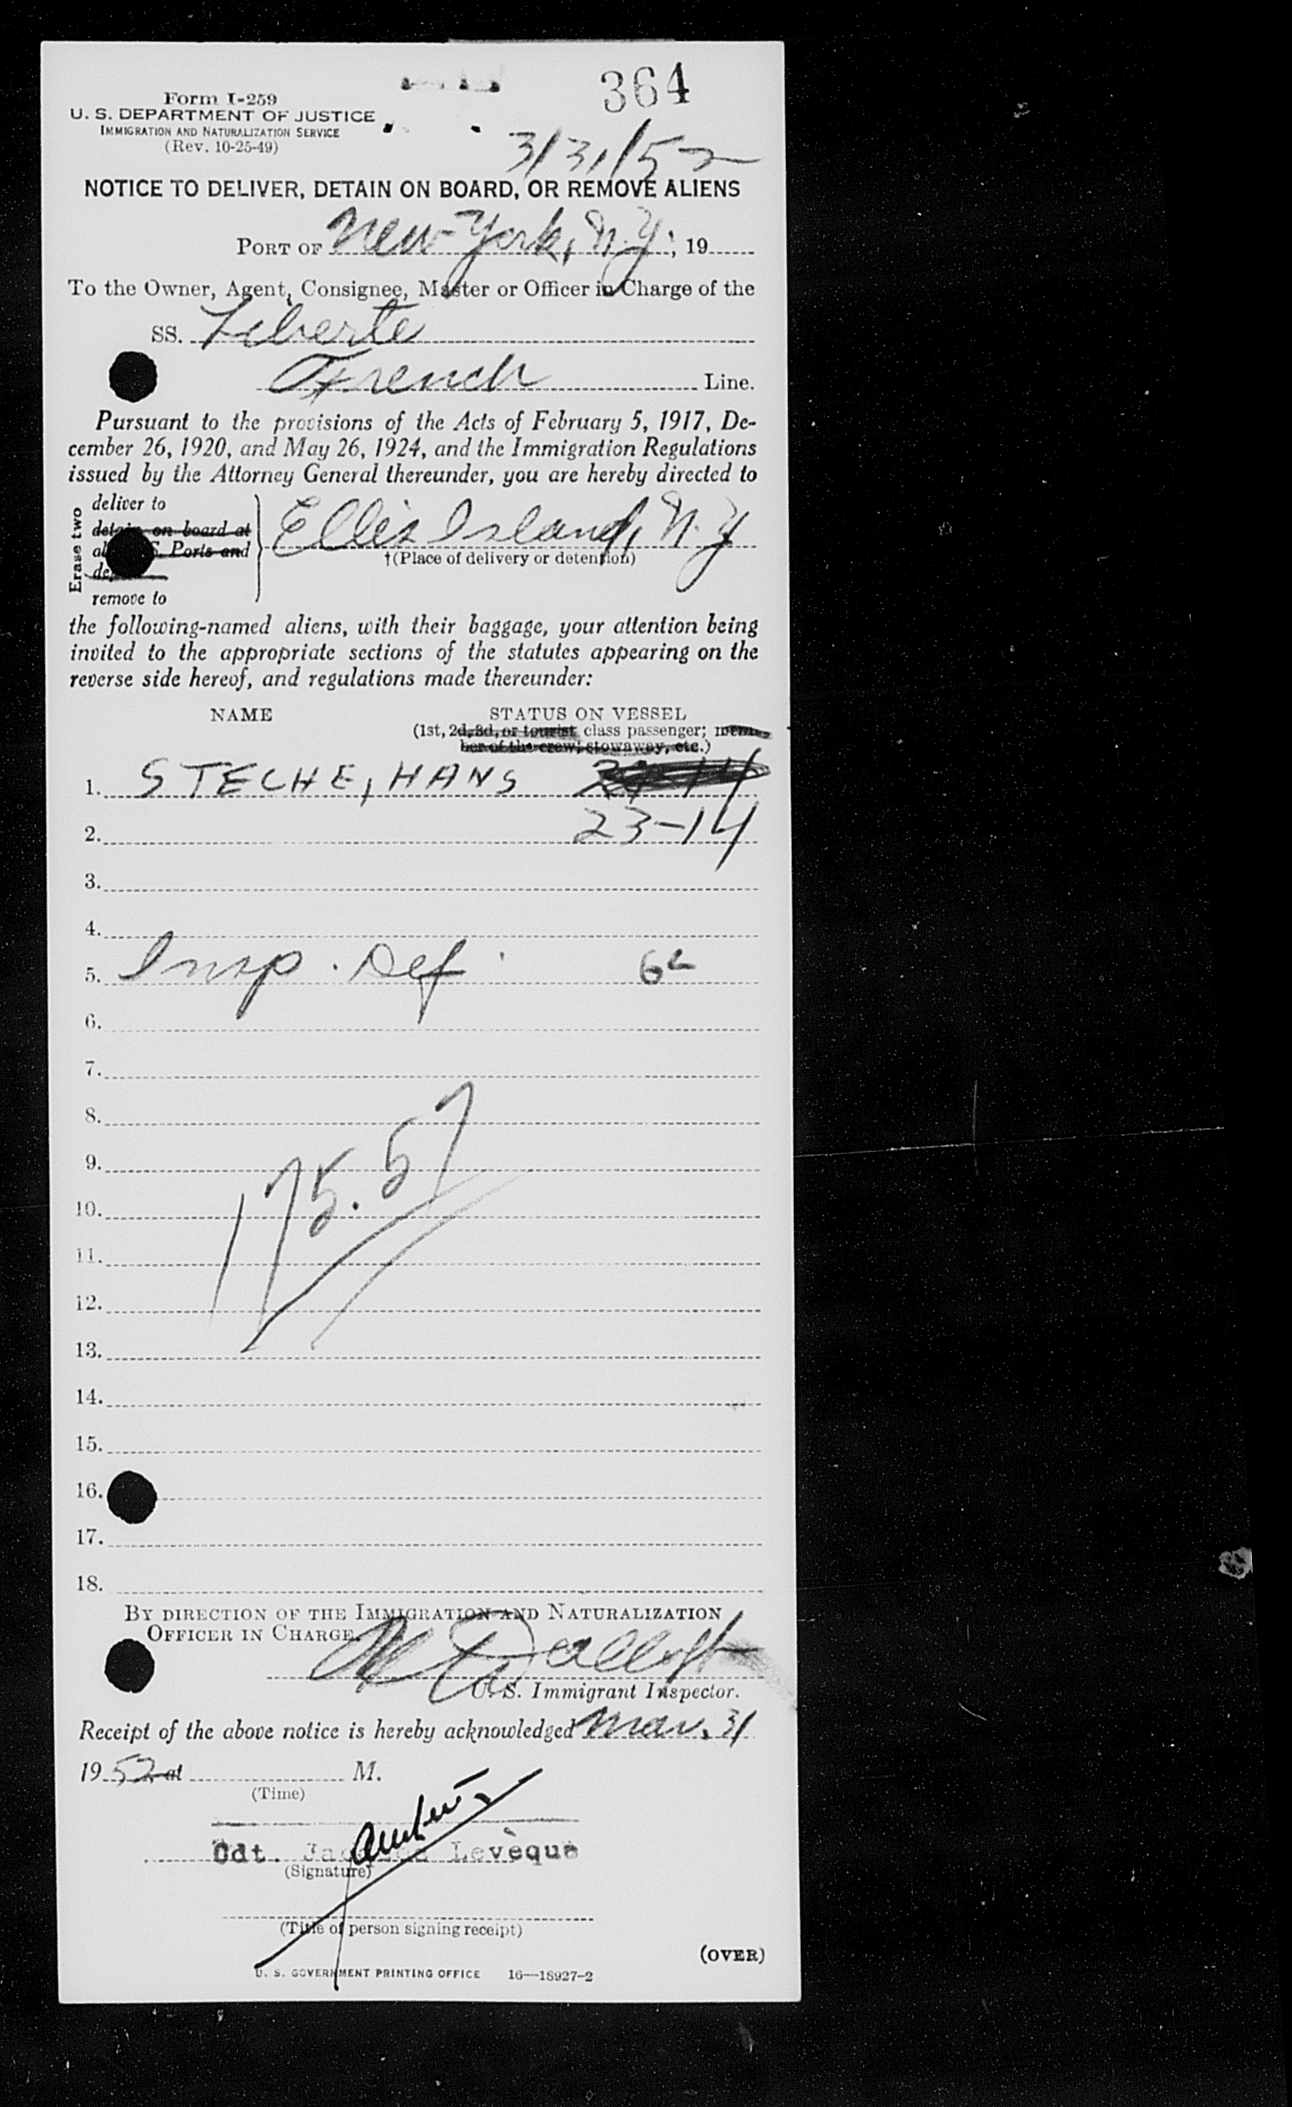 364
Form I-259
U. S. DEPARTMENT OF JUSTICE
IMMIGRATION AND NATURALIZATION SERVICE
(Rev. 10-25-49)
3/31/52
NOTICE TO DELIVER, DETAIN ON BOARD, OR REMOVE ALIENS
PORT OF New York, N.Y., 19
To the Owner, Agent, Consignee, Master or Officer in Charge of the
SS. Liberte
French Line.
Pursuant to the provisions of the Acts of February 5, 1917, De-
cember 26, 1920, and May 26, 1924, and the Immigration Regulations
issued by the Attorney General thereunder, you are hereby directed to
Erase two
deliver to
detain on board at
Ports and
remove to
Ellis Island, N.Y
†(Place of delivery or detention)
the following-named aliens, with their baggage, your attention being
invited to the appropriate sections of the statutes appearing on the
reverse side hereof, and regulations made thereunder:
NAME STATUS ON VESSEL
(1st, 2d, 3d, or tourist class passenger; mem-
ber of the crew; stowaway, etc.)
1. STECHE, HANS
2. 23-14
3.
4.
5. Insp. Def.
6.
7.
8.
9.
175.57
10.
11.
12.
13.
14.
15.
16.
17.
18.
BY DIRECTION OF THE IMMIGRATION AND NATURALIZATION
OFFICER IN CHARGE
U. S. Immigrant Inspector.
Receipt of the above notice is hereby acknowledged Mar. 31
19 52 at M.
(Time)
Cdt. Levèque
(Signature)
(Title of person signing receipt)
(OVER)
U. S. GOVERNMENT PRINTING OFFICE 16—18927-2